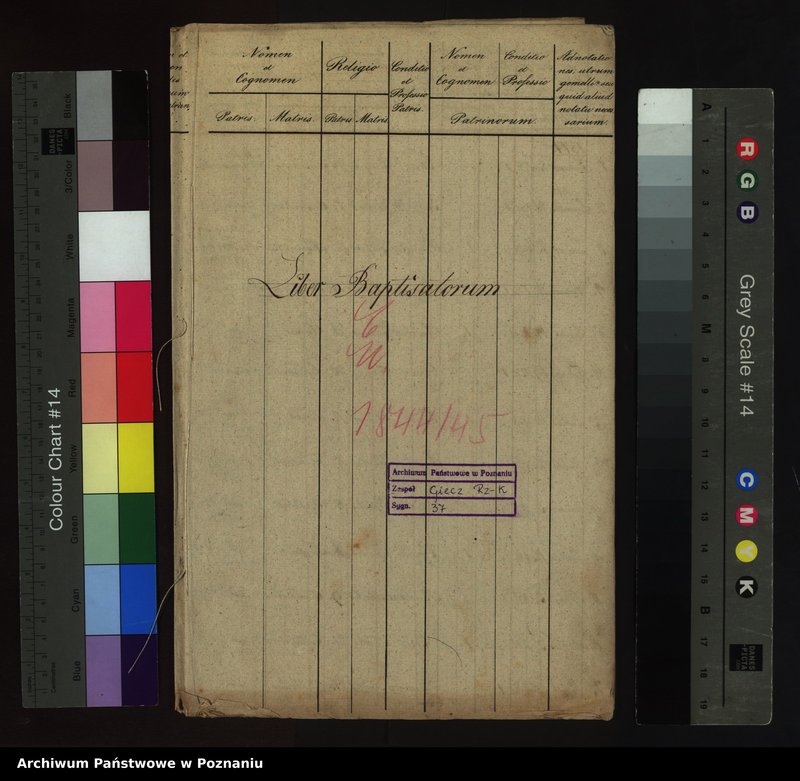 Nomen
et
Cognomen
Religio
Conditio
et
Professio
Patris.
Nomen
et
Cognomen
Conditio
et
Professio
Adnotatio
nes, utrum
gemelli, seu
quid aliud
notatu neces
sarium.
Patris.
Matris.
Patris
Matris
Patrinorum.
Liber Baptisatorum
1844/45
Archiwum Państwowe w Poznaniu
Zespół Giecz Rz-K
Sygn. 37
Colour Chart #14
Black
3/Color
White
Magenta
Red
Yellow
Green
Cyan
Blue
DANES
PICTA
.COM
Grey Scale #14
R
G
B
C
M
Y
K
A
1
2
3
4
5
6
M
8
9
10
11
12
13
14
15
B
17
18
19
DANES
PICTA
.COM
Archiwum Państwowe w Poznaniu